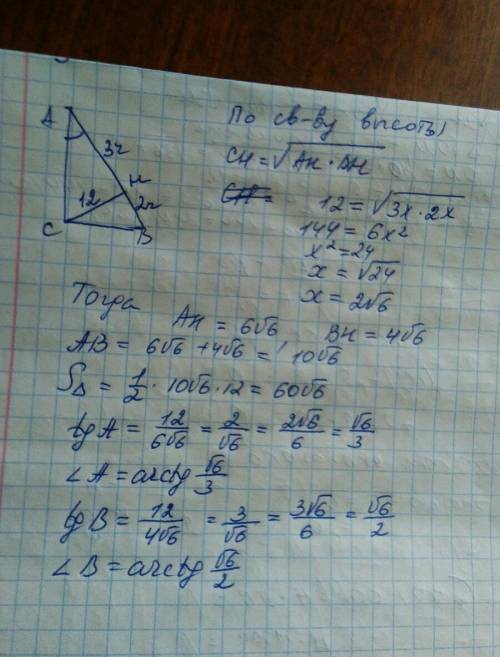 По св-ву высоты
CH = √AH · BH
12 = √3x · 2x
144 = 6x²
x² = 24
x = √24
x = 2√6
A
3x
H
12
2x
C
B
Тогда
AH = 6√6 BH = 4√6
AB = 6√6 + 4√6 = 10√6
S△ = 1/2 · 10√6 · 12 = 60√6
tg A = 12/6√6 = 2/√6 = 2√6/6 = √6/3
∠A = arctg √6/3
tg B = 12/4√6 = 3/√6 = 3√6/6 = √6/2
∠B = arctg √6/2